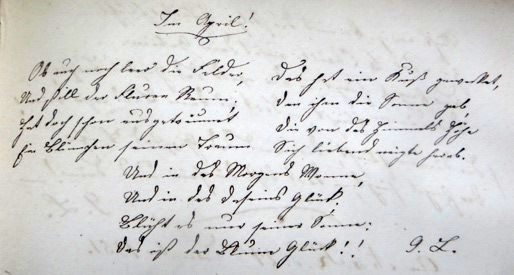 Im April!
Ob auch noch leer die Felder,
Und still der Fluren Raum,
Hat doch schon ausgeträumt
Ein Blümchen seinen Traum
Das hat ein Kuß gewecket,
den ihm die Sonne gab,
Die von des Himmels Höhe
Sich liebend neigte herab.
Und in des Morgens Wonne,
Und in des Daseins Glück,
Blüht es nur seiner Sonne:
Das ist der Blume Glück!!
G. L.